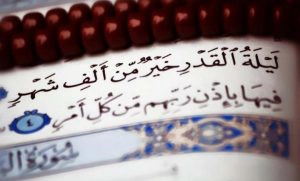 لَيْلَةُ ٱلْقَدْرِ خَيْرٌ مِّنْ أَلْفِ شَهْرٍ
فِيهَا بِإِذْنِ رَبِّهِم مِّن كُلِّ أَمْرٍ
٤
سُورَةُ